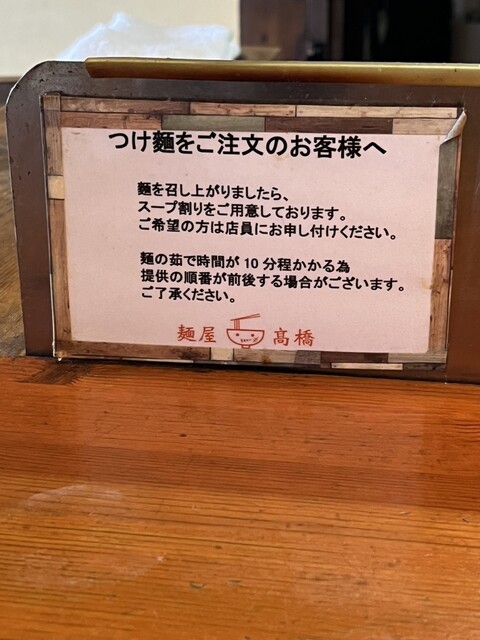 つけ麵をご注文のお客様へ
麵を召し上がりましたら、
スープ割りをご用意しております。
ご希望の方は店員にお申し付けください。
麵の茹で時間が10分程かかる為
提供の順番が前後する場合がございます。
ご了承ください。
麵屋 髙橋